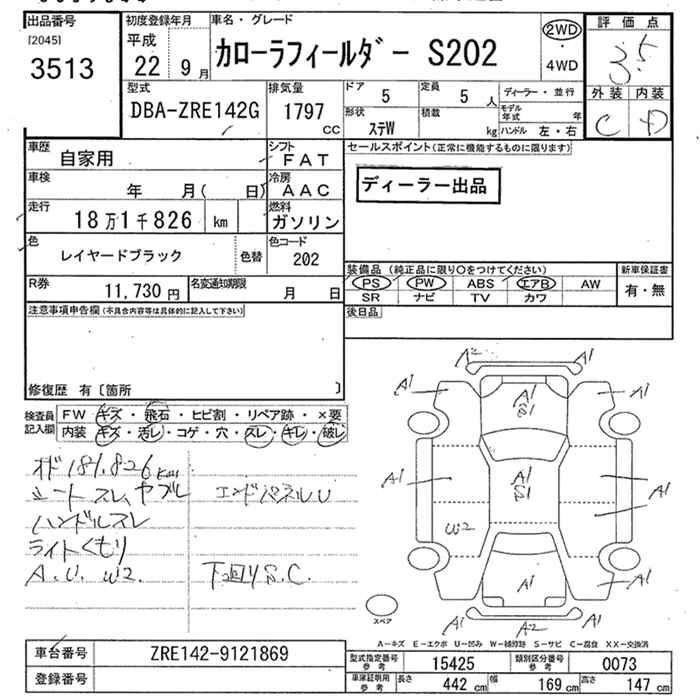 出品番号 初度登録年月 車名・グレード 評価点
[2045] 平成
3513 22 9月 カローラフィールダー S202 2WD・4WD 3.5
型式 排気量 ドア 定員 ディーラー・並行 外装 内装
DBA-ZRE142G 1797 CC 5 5人 モデル年式 年 C D
形状 積載 ハンドル 左・右
ステW kg
車歴 シフト セールスポイント(正常に機能するものに限ります)
自家用 FAT
車検 冷房 ディーラー出品
年 月( 日) AAC
走行 燃料
18万1千826 km ガソリン
色 色替 色コード
レイヤードブラック 202
装備品(純正品に限り○をつけてください) 新車保証書
R券 名変通知期限 PS PW ABS エアB AW 有・無
11,730円 月 日 SR ナビ TV カワ
注意事項申告欄(不具合内容等は具体的に記入して下さい) 後日品
修復歴 有〔箇所 〕
検査員記入欄 FW キズ・飛石・ヒビ割・リペア跡・×要
内装 キズ・汚レ・コゲ・穴・スレ・キレ・破レ
オド181.826km
シートスレ、ヤブレ エンドパネルU
ハンドルスレ
ライトくもり
A.U.W2. 下回りS.C.
A2 A1
A1 A1 S1 A1
A1 A1 S1 A1
W2 A1
A1 A1
A1 A2 A1
スペア
A-キズ E-エクボ U-凹み W-補修跡 S-サビ C-腐食 XX-交換済
車台番号 ZRE142-9121869 型式指定番号 参考 15425 類別区分番号 参考 0073
登録番号 車庫証明用 参考 長さ 442 cm 幅 169 cm 高さ 147 cm